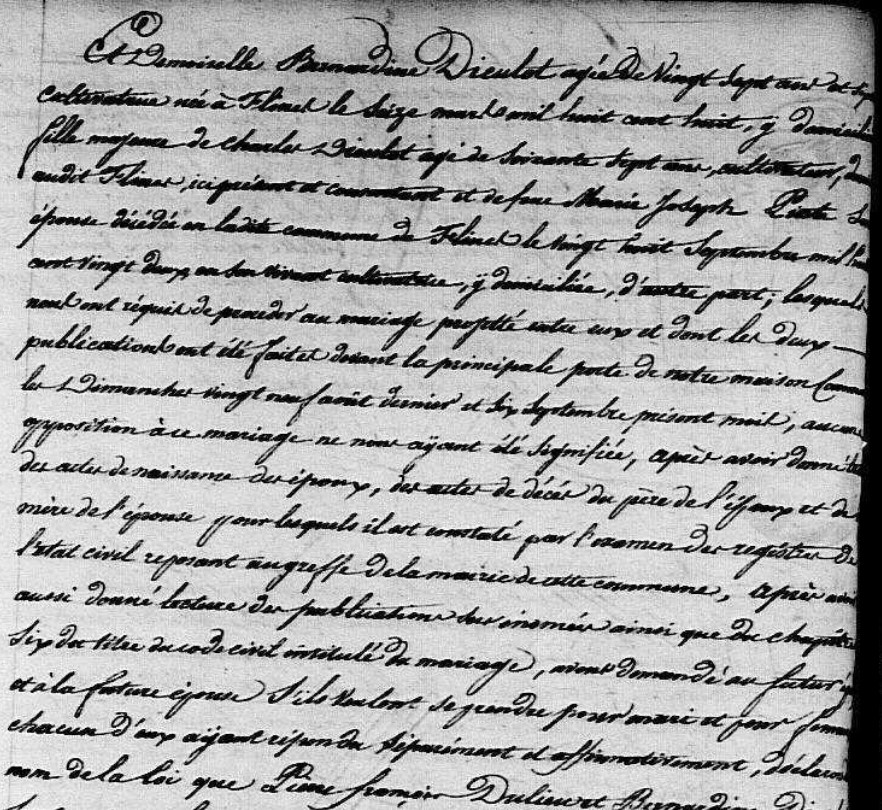 Et Demoiselle Bernardine Dieulot agée de Vingt Sept ans et
cultivatrice née à Flines le Seize mars mil huit cent huit, y domiciliée
fille majeure de Charles Dieulot agé de Soixante Sept ans, cultivateur,
audit Flines, ici présent et consentant et de feue Marie Joseph
épouse décédée en ladite commune de Flines le vingt huit Septembre mil huit
cent vingt deux en son vivant cultivatrice, y domiciliée, d'autre part; lesquels
nous ont réquis de procéder au mariage projetté entre eux et dont les deux
publications ont été faites devant la principale porte de notre maison Commune
les Dimanches vingt neuf août dernier et Six Septembre présent mois, aucune
opposition à ce mariage ne nous ayant été signifiée, après avoir donné
des actes de naissance des époux, des actes de décès du père de l'époux et de
mère de l'épouse pour lesquels il est constaté par l'examen des registres de
l'état civil reposant au greffe de la mairie de cette commune, après avoir
aussi donné lecture des publications sus énoncées ainsi que du chapitre
Six du titre du code civil intitulé du mariage, avons demandé au futur
et à la future épouse S'ils veulent se prendre pour mari et pour femme
chacun d'eux ayant répondu Séparément et affirmativement, déclarons
nom de la loi que Pierre françois Dulieu et Bernardine